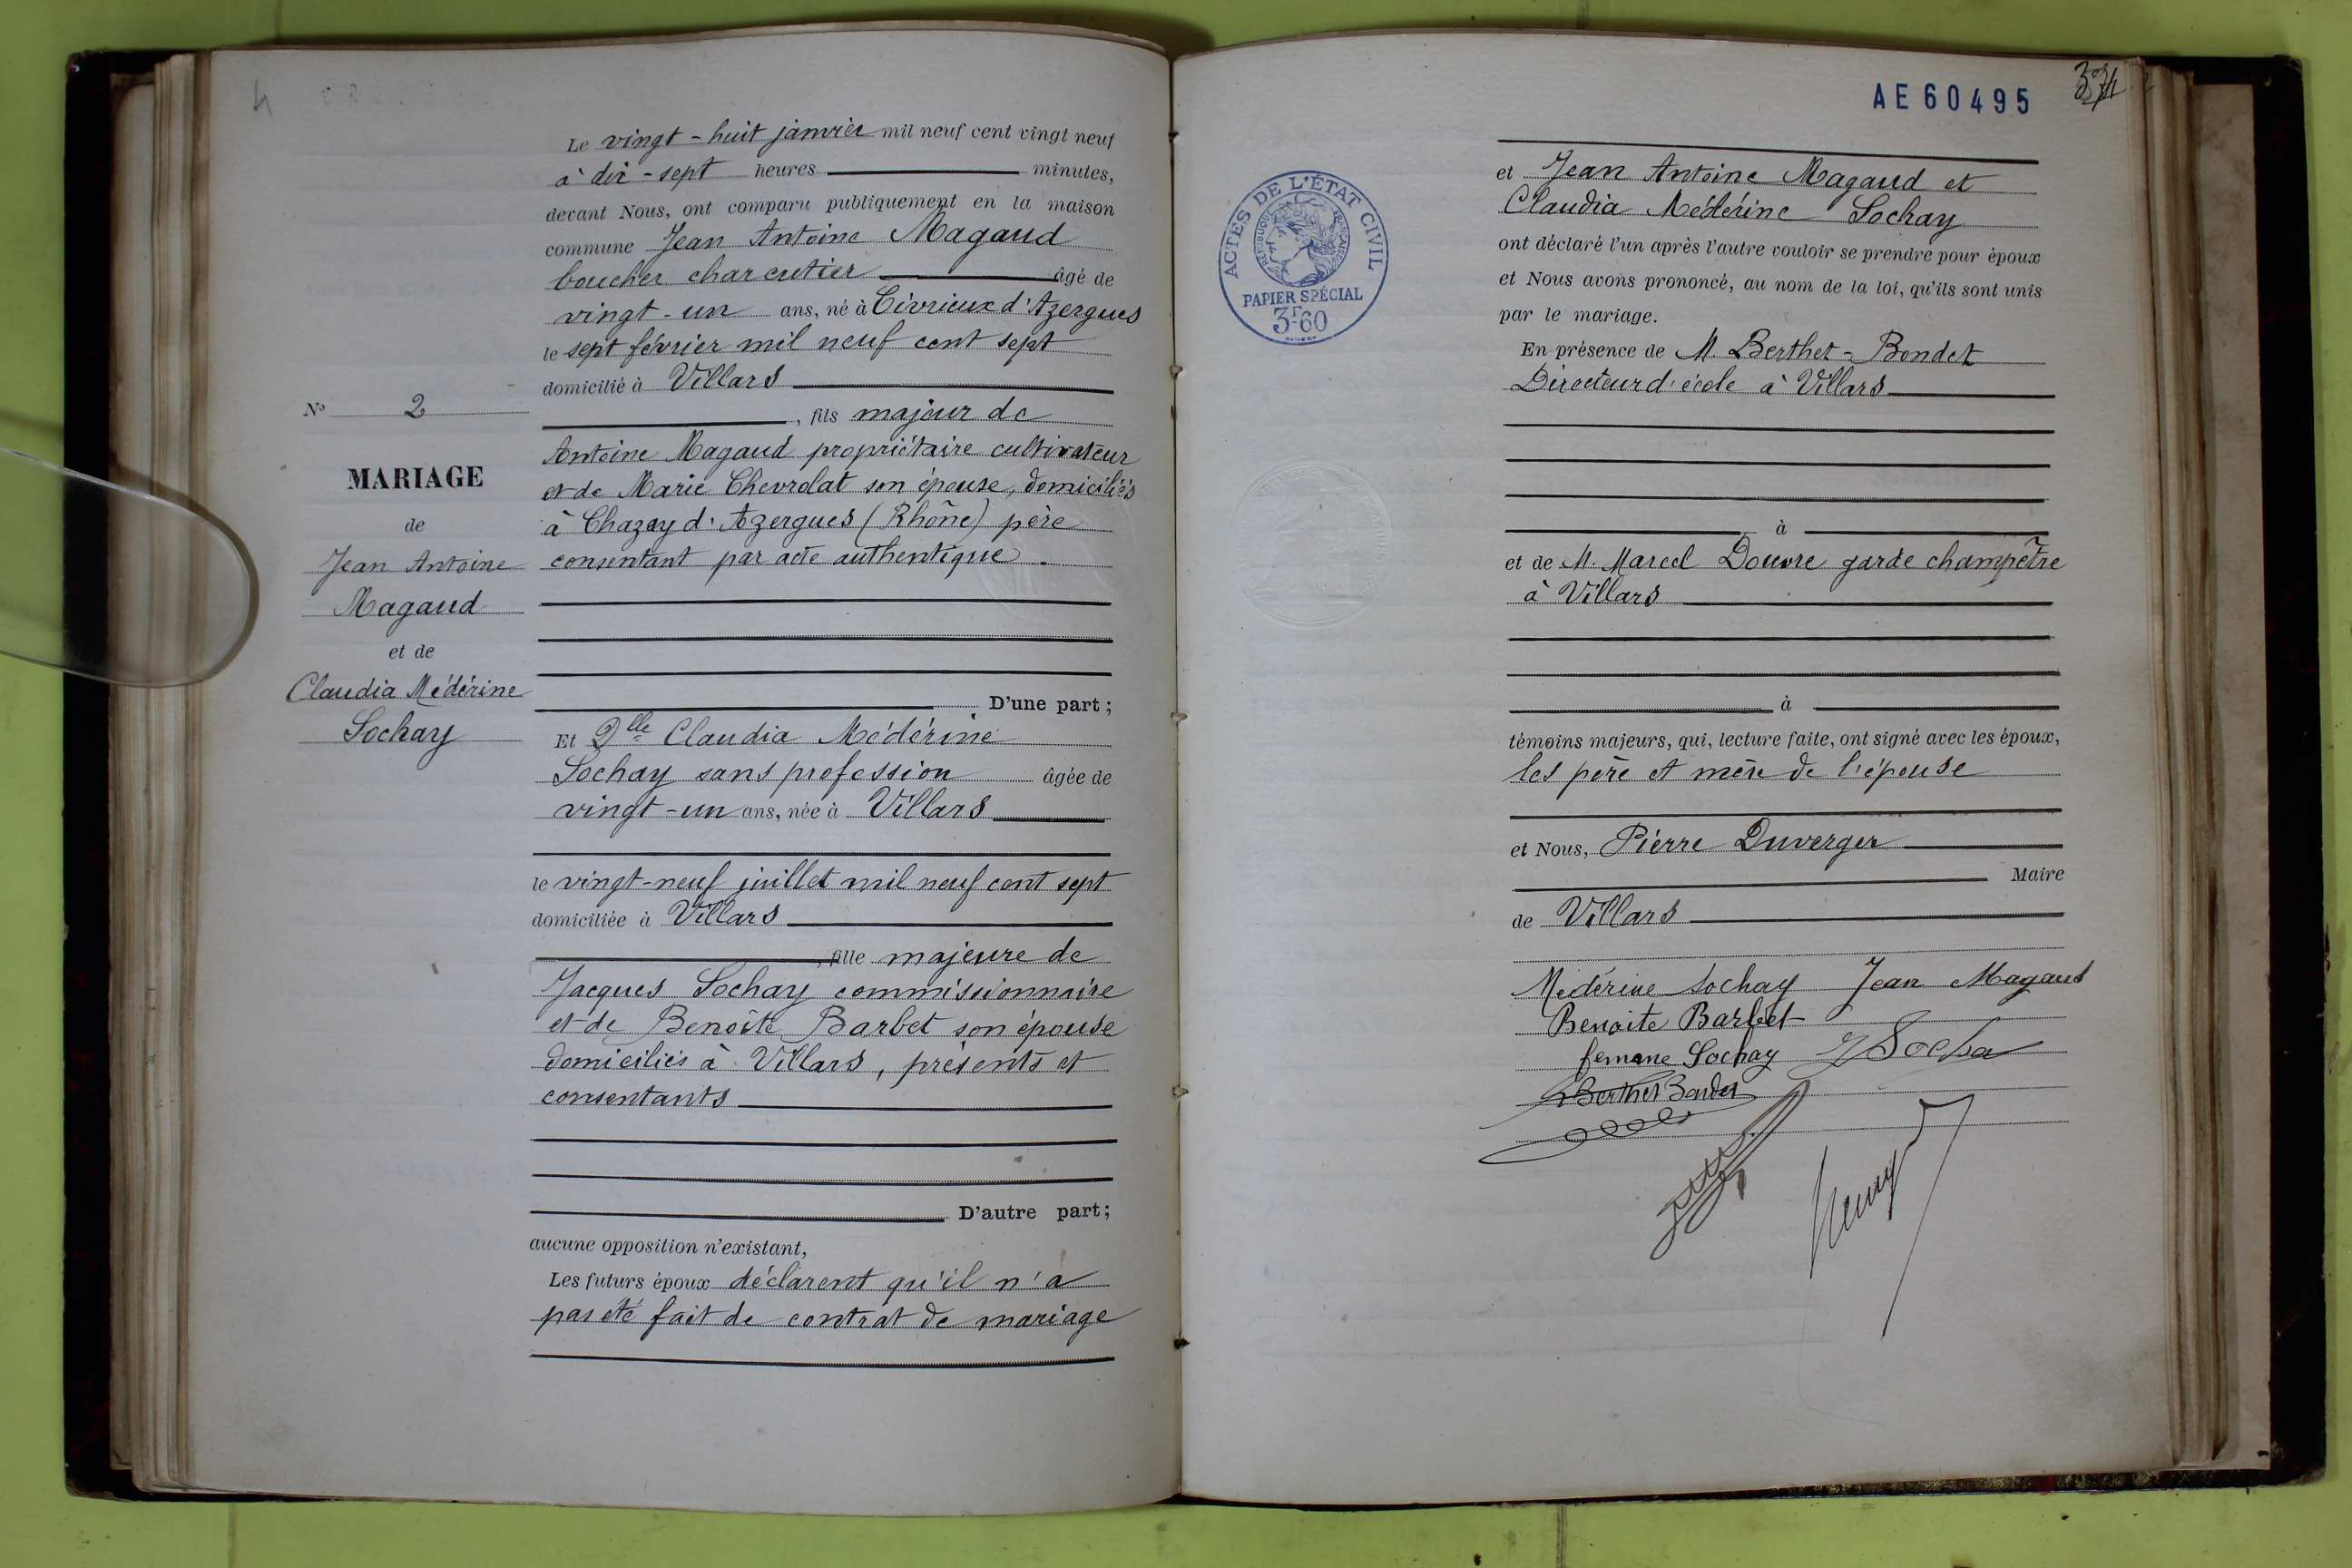 4
Le vingt-huit janvier mil neuf cent vingt neuf
à dix-sept heures minutes,
devant Nous, ont comparu publiquement en la maison
commune Jean Antoine Magaud
boucher charcutier âgé de
vingt-un ans, né à Civrieux d'Azergues
le sept février mil neuf cent sept
domicilié à Villars
, fils majeur de
Antoine Magaud propriétaire cultivateur
et de Marie Chevrolat son épouse, domiciliés
à Chazay d'Azergues (Rhône) père
consentant par acte authentique.
D'une part;
Et Dlle Claudia Médérine
Sochay sans profession âgée de
vingt-un ans, née à Villars
le vingt-neuf juillet mil neuf cent sept
domiciliée à Villars
, fille majeure de
Jacques Sochay commissionnaire
et de Benoîte Barbet son épouse
domiciliés à Villars, présents et
consentants
D'autre part;
aucune opposition n'existant,
Les futurs époux déclarent qu'il n'a
pas été fait de contrat de mariage
No 2
MARIAGE
de
Jean Antoine
Magaud
et de
Claudia Médérine
Sochay
AE 60495
ACTES DE L'ÉTAT CIVIL
RÉPUBLIQUE FRANÇAISE
PAPIER SPÉCIAL
3f60
et Jean Antoine Magaud et
Claudia Médérine Sochay
ont déclaré l'un après l'autre vouloir se prendre pour époux
et Nous avons prononcé, au nom de la loi, qu'ils sont unis
par le mariage.
En présence de M. Berthet-Bondet
Directeur d'école à Villars
à
et de M. Marcel Douvre garde champêtre
à Villars
à
témoins majeurs, qui, lecture faite, ont signé avec les époux,
les père et mère de l'épouse
et Nous, Pierre Duverger
Maire
de Villars
Médérine Sochay Jean Magaud
Benoite Barbet
femme Sochay J Socha
Berthet Bondet